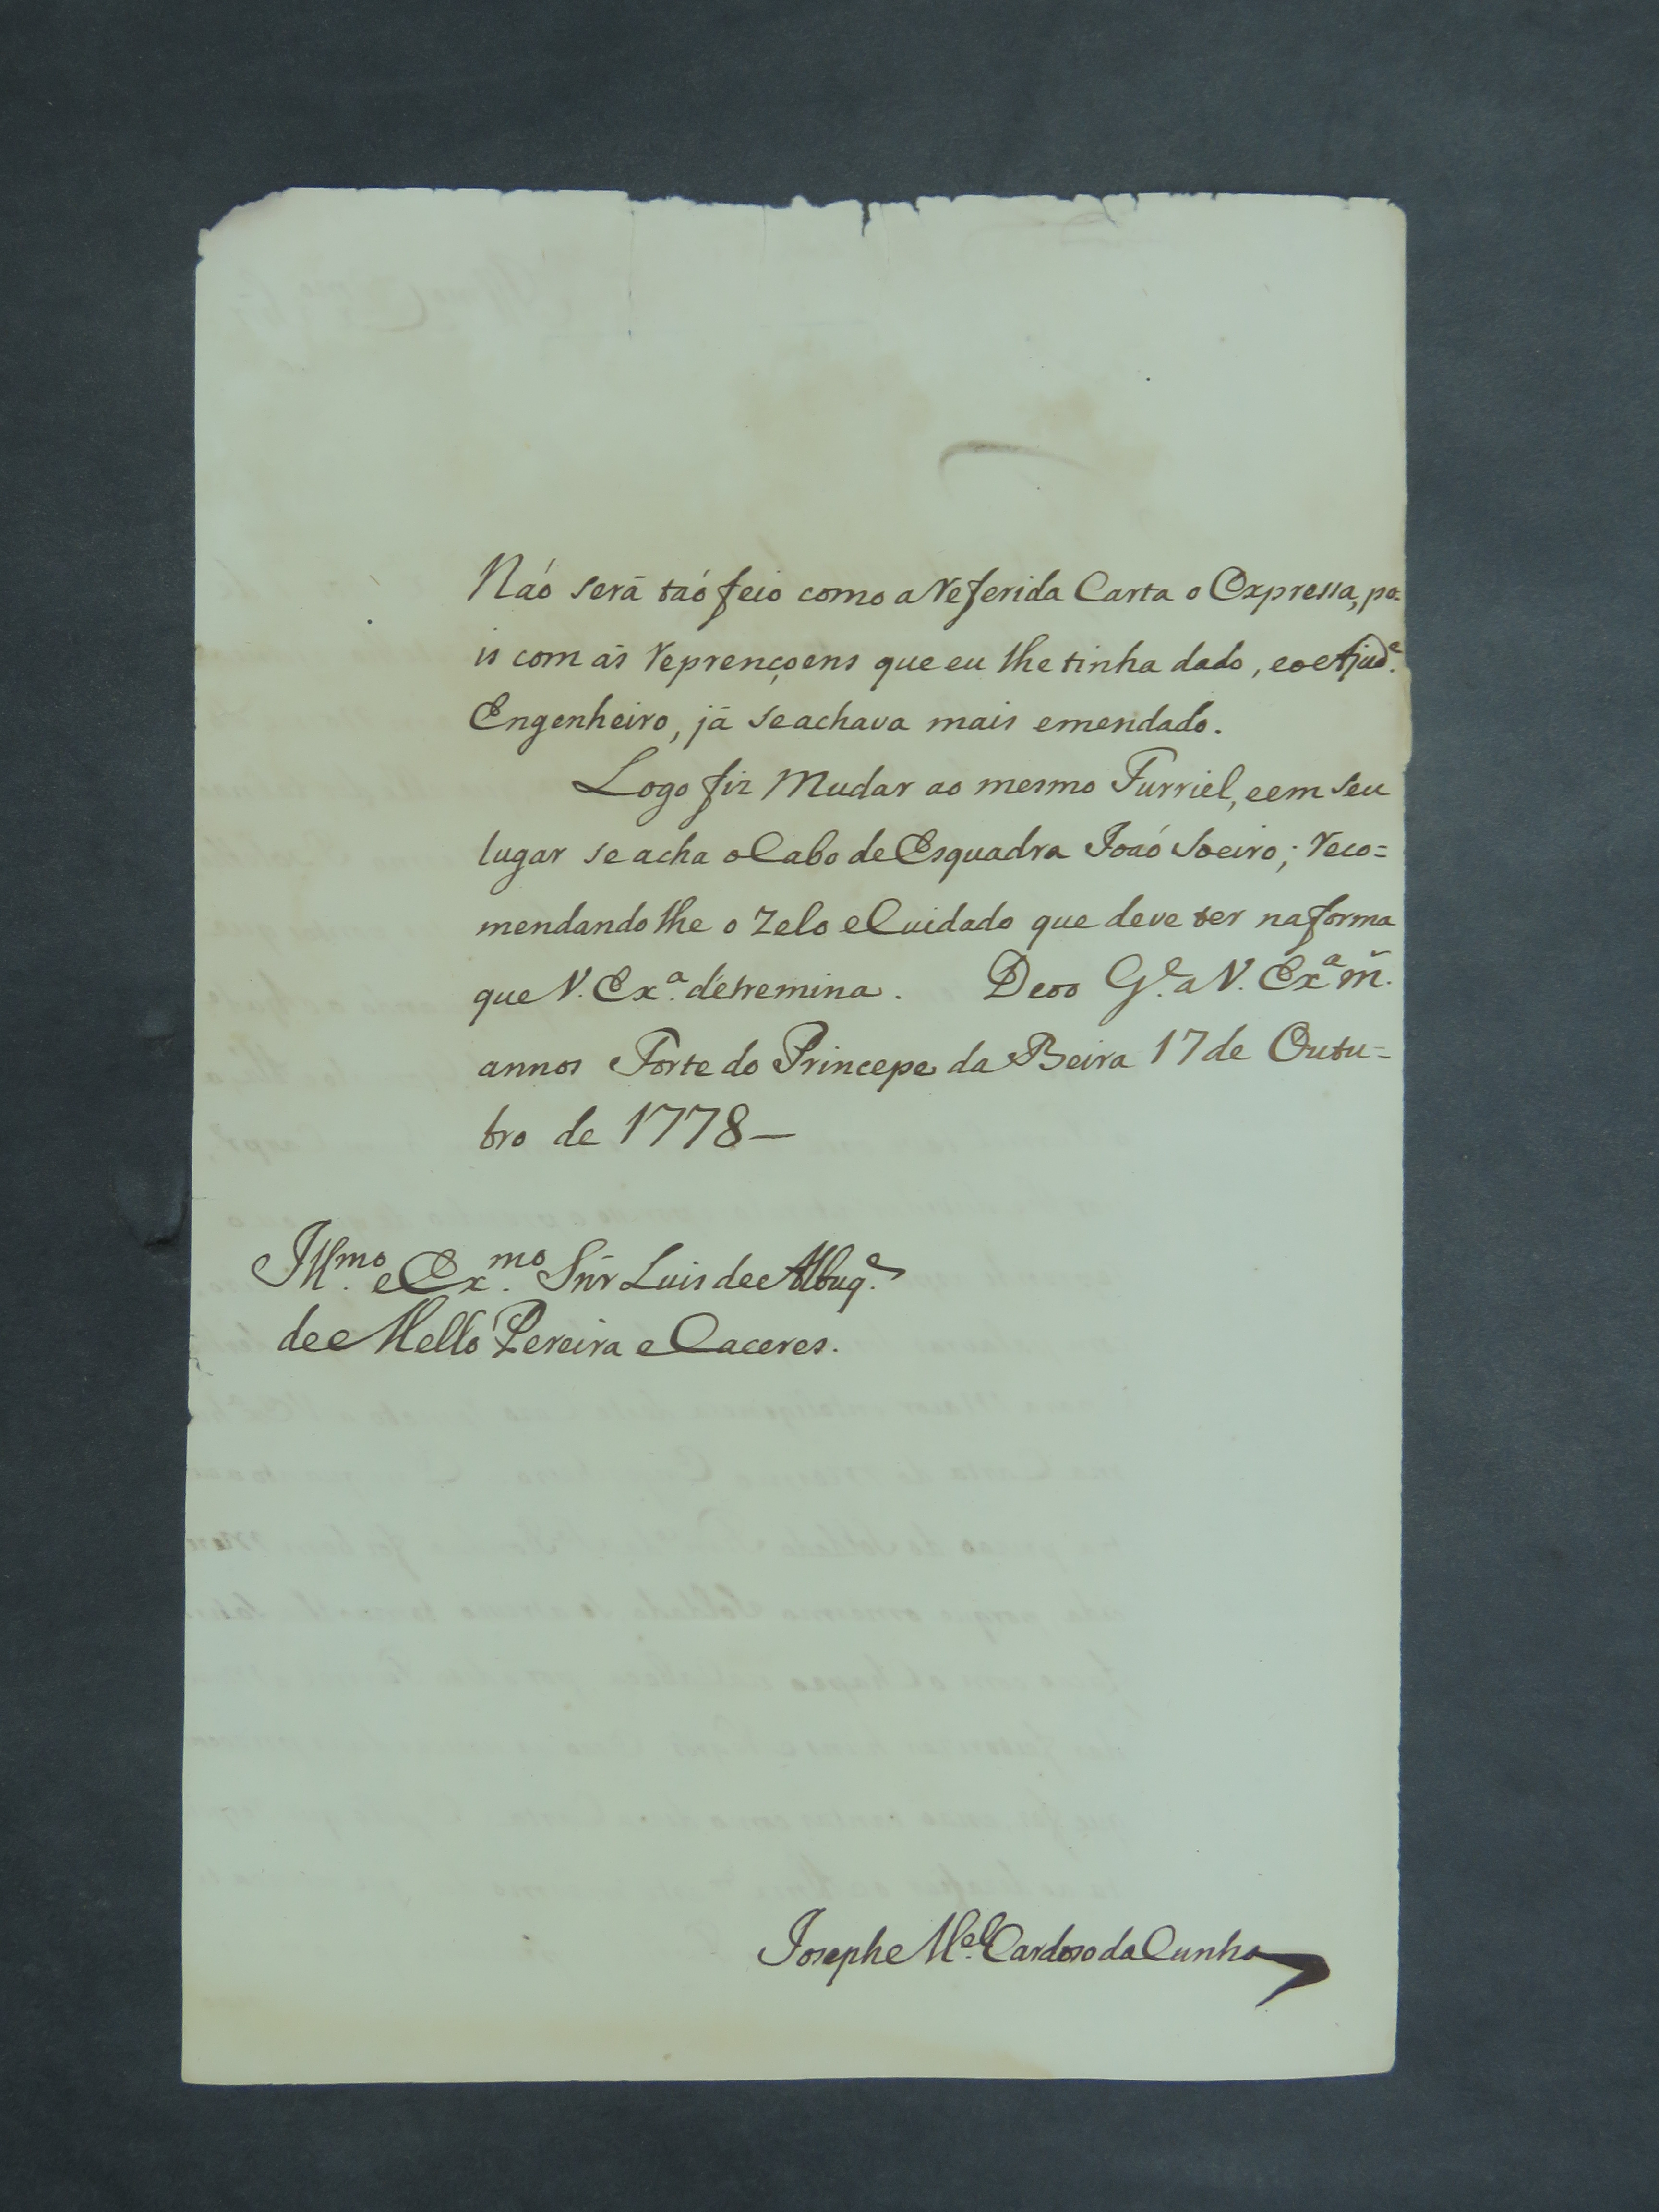 Náo será táo feio como a referida Carta o Expressa, po-
is com ás reprençoens que eu lhe tinha dado, eo Ajud.e
Engenheiro, já se achava mais emendado.
Logo fiz Mudar ao mesmo Furriel, eem seu
lugar se acha o Cabo de Esquadra Joaó Soeiro; reco=
mendandolhe o Zelo e Cuidado que deve ter na forma
que V. Ex.a detremina. Deos G.e a V. Ex.a m.
annos Forte do Princepe da Beira 17 de Outu=
bro de 1778—
Ill.mo e Ex.mo Snr Luis de Albuq.e
de Mello Pereira e Caceres.
Josephe M.el Cardoso da Cunha